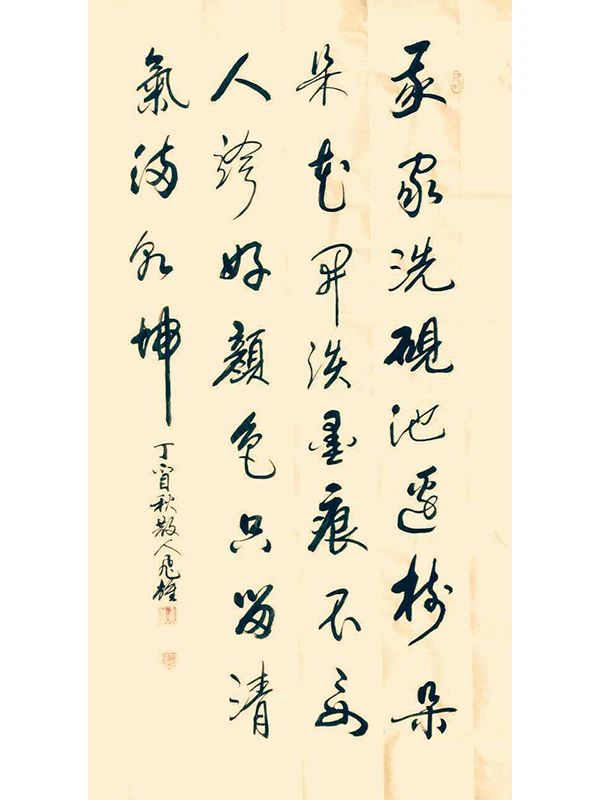 我家洗硯池邊樹朵
朵花開淡墨痕不要
人誇好顏色只留清
氣滿乾坤
丁酉秋散人飛雄